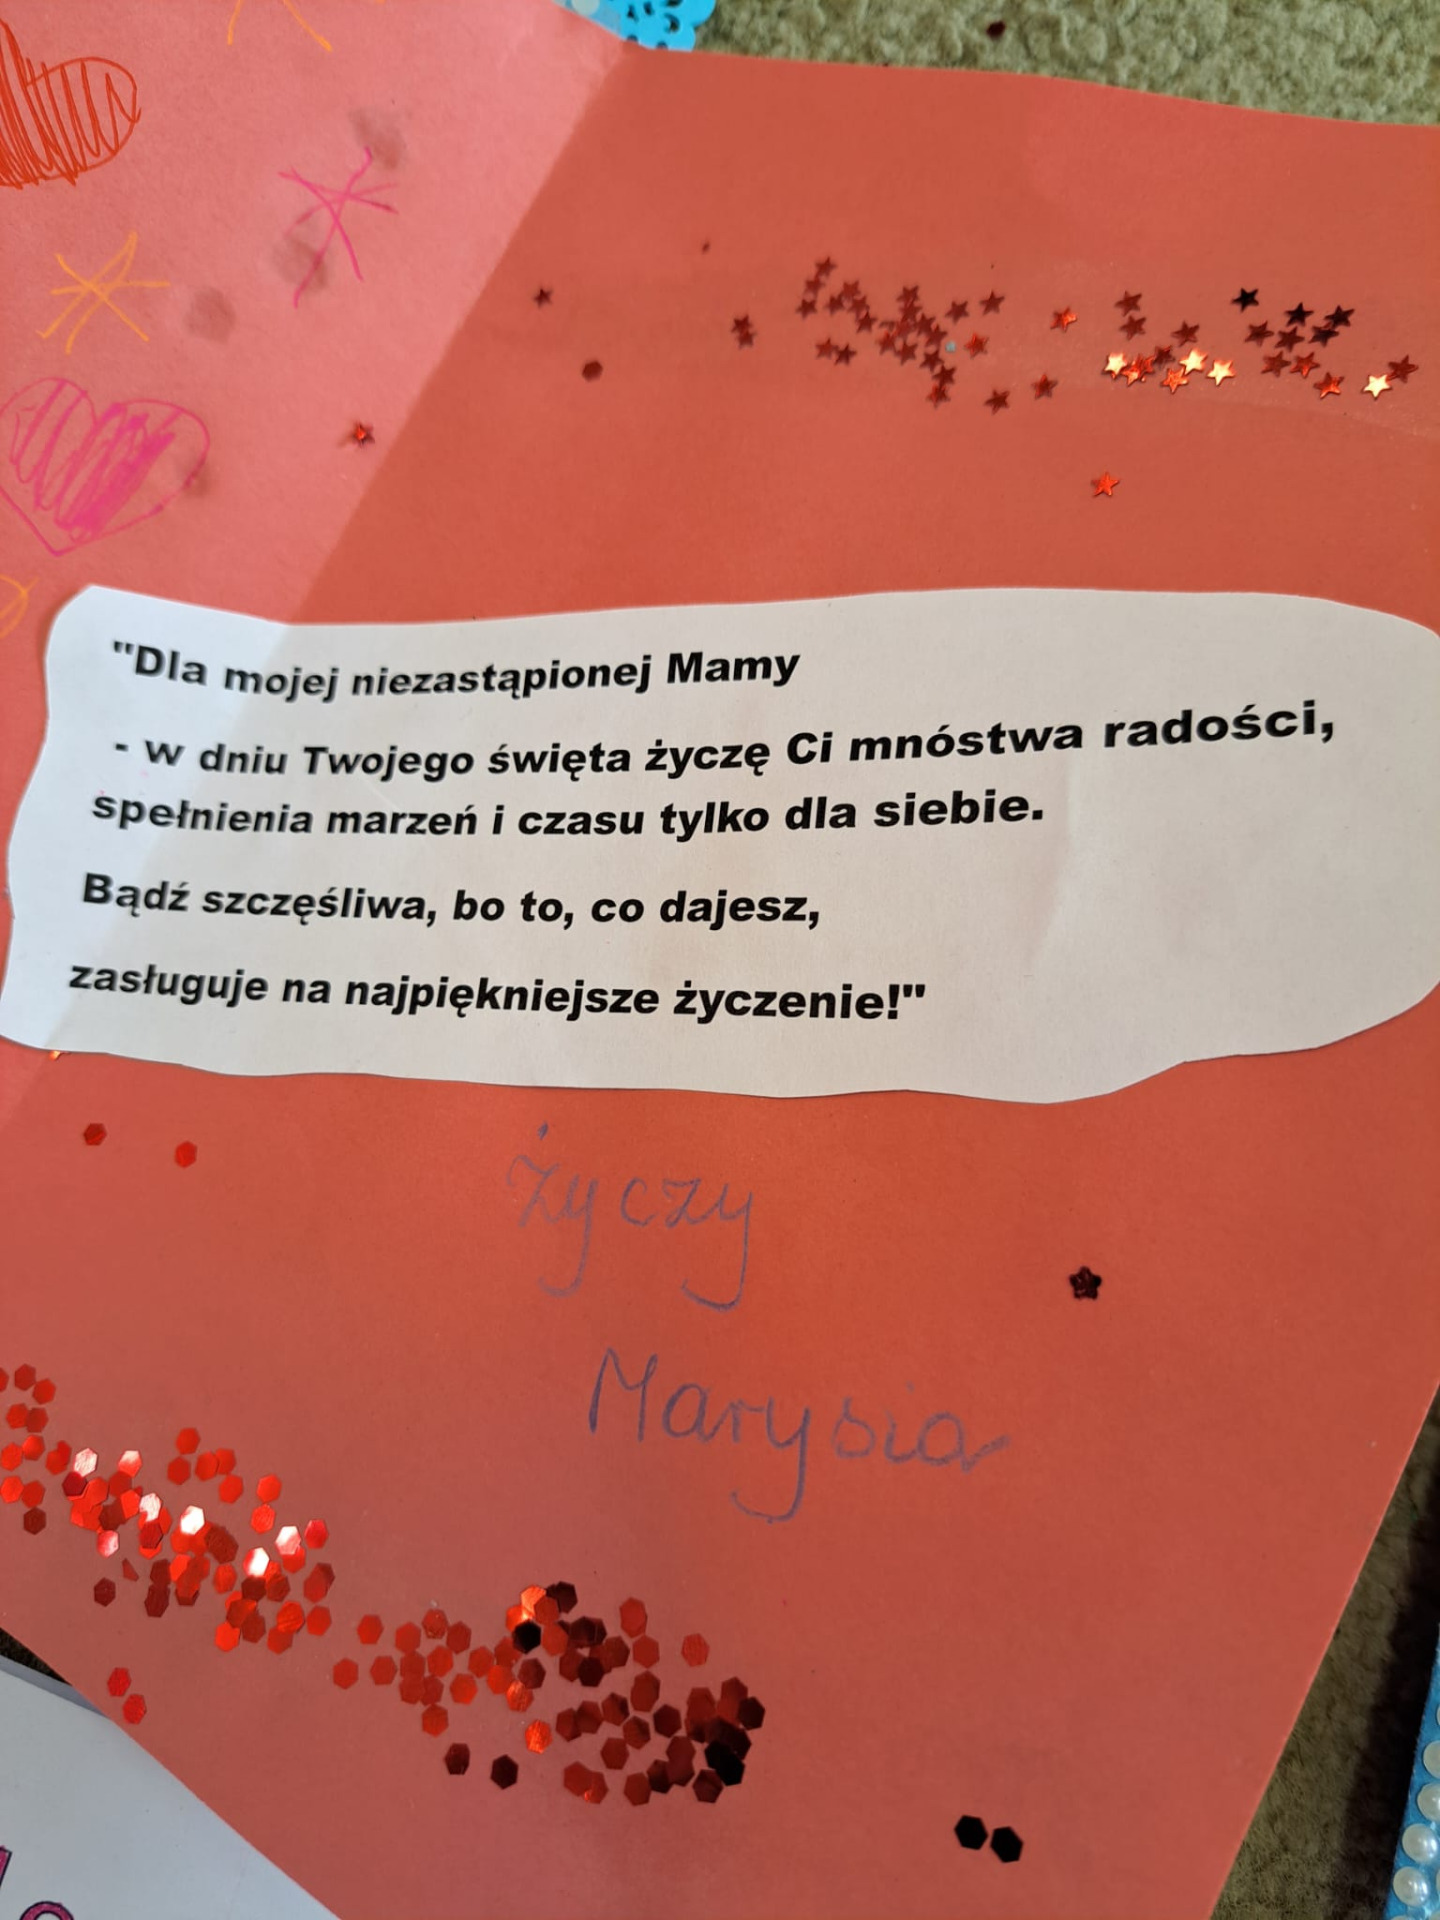 "Dla mojej niezastąpionej Mamy
- w dniu Twojego święta życzę Ci mnóstwa radości,
spełnienia marzeń i czasu tylko dla siebie.
Bądź szczęśliwa, bo to, co dajesz,
zasługuje na najpiękniejsze życzenie!"
Życzy
Marysia